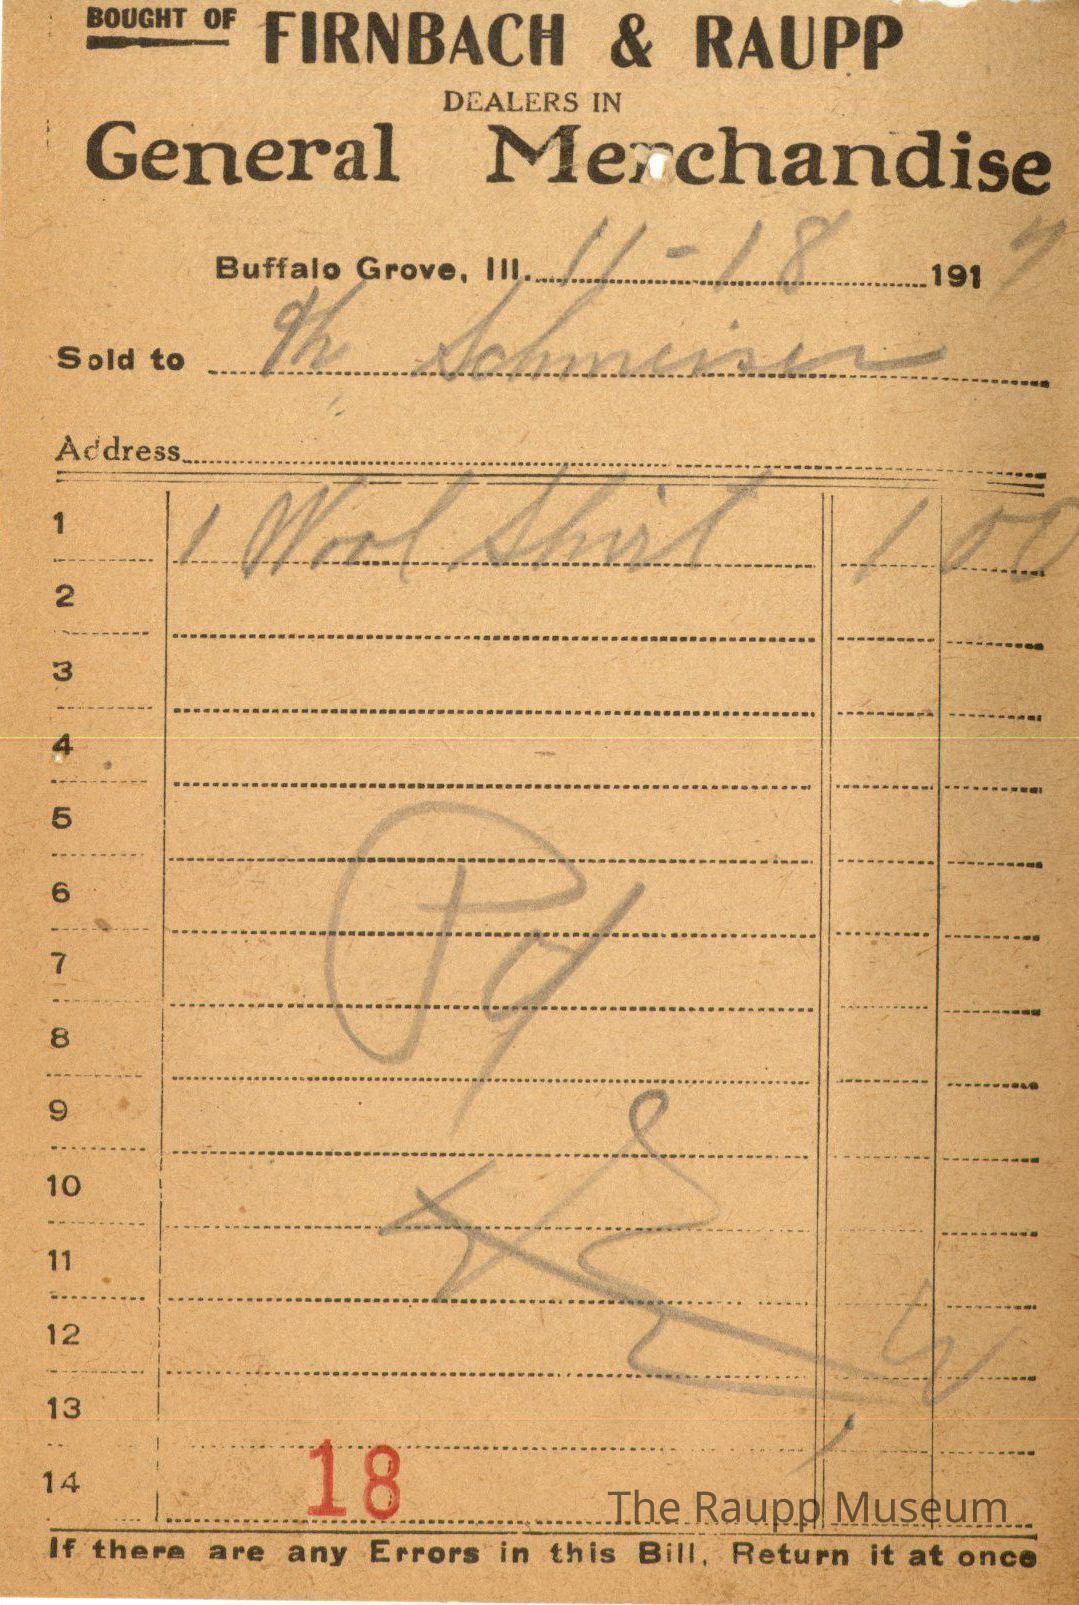 BOUGHT OF FIRNBACH & RAUPP
DEALERS IN
General Merchandise
Buffalo Grove, Ill. 11-18 191
Sold to Schmeiser
Address
1 1 Wool Shirt 1 00
2
3
4
5
6
7
8
9
10
11
12
13
14
Pd
18
The Raupp Museum
If there are any Errors in this Bill, Return it at once